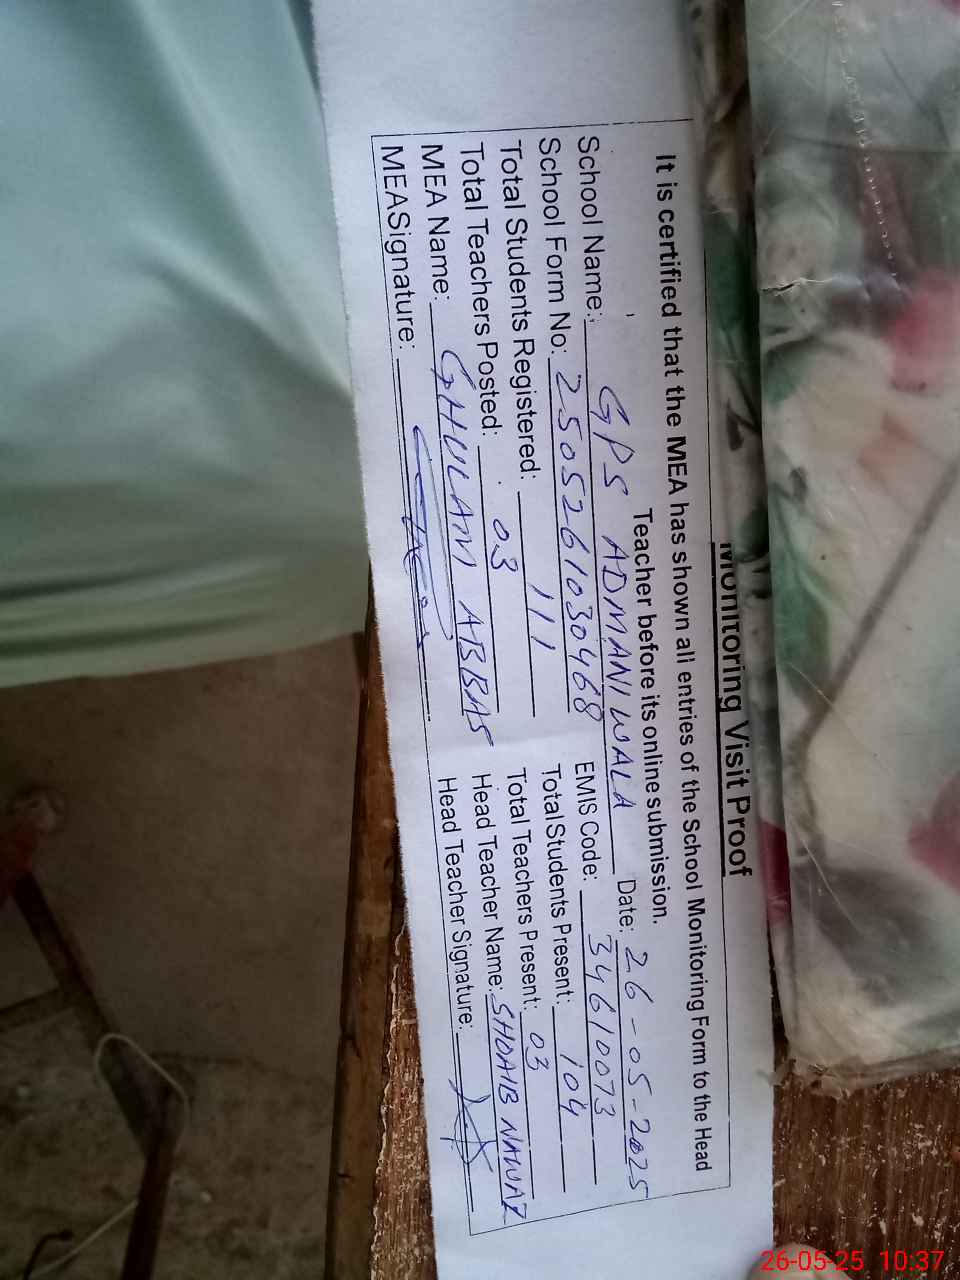 Monitoring Visit Proof
It is certified that the MEA has shown all entries of the School Monitoring Form to the Head
Teacher before its online submission.
Date: 26-05-2025
School Name: GPS ADMANIWALA
EMIS Code: 34610073
School Form No: 2505261030468
Total Students Present: 104
Total Students Registered: 111
Total Teachers Present: 03
Total Teachers Posted: 03
Head Teacher Name: SHOAIB NAWAZ
MEA Name: GHULAM ABBAS
Head Teacher Signature:
MEASignature:
26-05-25 10:37